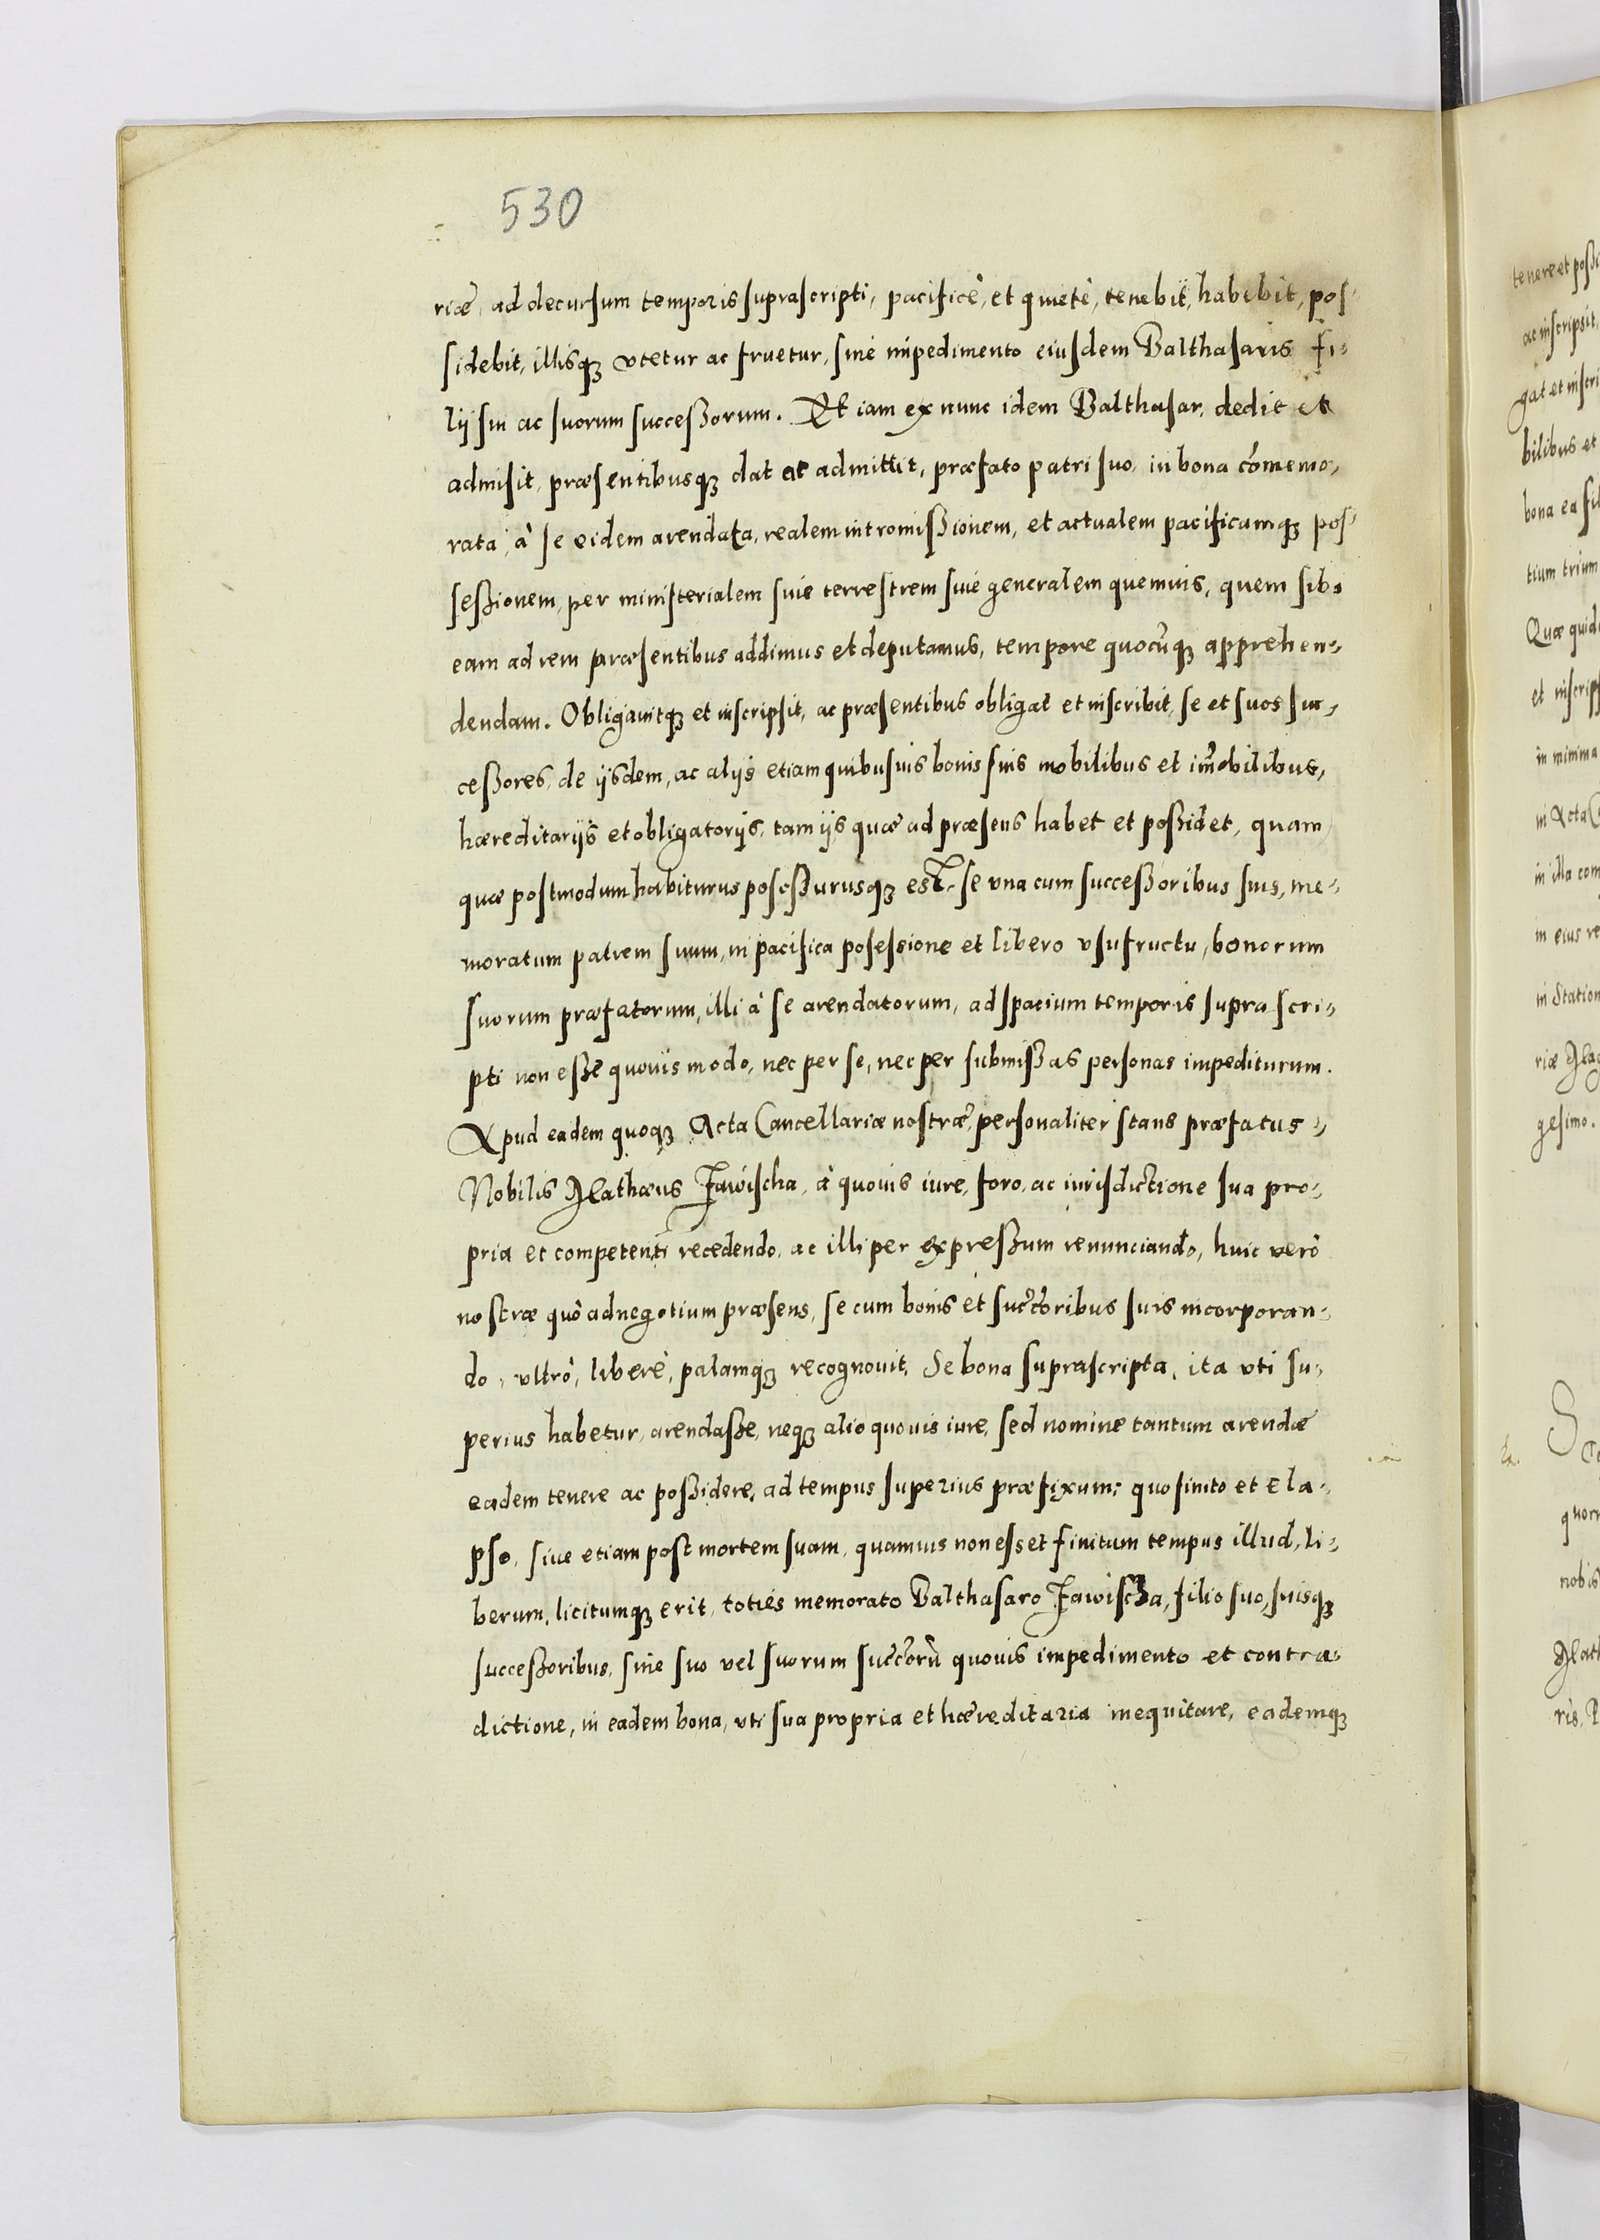 530
riæ, ad decursum temporis suprascripti, pacificè, et quietè, tenebit, habebit, pos-
sidebit, illisqꝫ vtetur ac fruetur, sine impedimento eiusdem Balthasaris fi-
lij sui ac suorum successorum. Et iam ex nunc idem Balthasar, dedit et
admisit, præsentibusqꝫ dat et admittit, præfato patri suo, in bona com̃emo-
rata, à se eidem arendata, realem intromissionem, et actualem pacificamqꝫ pos-
sessionem, per ministerialem siue terrestrem siue generalem quemuis, quem sibi
eam ad rem præsentibus addimus et deputamus, tempore quocũqꝫ apprehen-
dendam. Obligauitqꝫ et inscripsit, ac præsentibus obligat et inscribit, se et suos suc-
cessores, de ijsdem, ac alijs etiam quibusuis bonis suis mobilibus et im̃obilibus,
hæreditarijs et obligatorijs, tam ijs quæ ad præsens habet et possidet, quam
quæ postmodum habiturus posessurusqꝫ est, se vna cum successoribus suis, me-
moratum patrem suum, in pacifica posessione et libero vsufructu, bonorum
suorum præfatorum, illi à se arendatorum, ad spacium temporis supra scri-
pti non esse quouis modo, nec per se, nec per submissas personas impediturum.
Apud eadem quoqꝫ Acta Cancellariæ nostræ, personaliter stans præfatus
Nobilis Mathæus Jawischa, à quouis iure, foro, ac iurisdictione sua pro-
pria et competenti recedendo, ac illi per expressum renunciando, huic verò
nostræ quò ad negotium præsens, se cum bonis et succ̃oribus suis incorporan-
do, vltrò, liberè, palamqꝫ recognouit, Se bona suprascripta, ita vti su-
perius habetur, arendasse, neqꝫ alio quouis iure, sed nomine tantum arendæ
eadem tenere ac possidere, ad tempus superius præfixum: quo finito et ela-
pso, siue etiam post mortem suam, quamuis non esset finitum tempus illud, li-
berum, licitumqꝫ erit, totiès memorato Balthasaro Jawischa, filio suo, suisqꝫ
successoribus, sine suo vel suorum succ̃orũ quouis impedimento et contra-
dictione, in eadem bona, vti sua propria et hæreditaria inequitare, eademqꝫ
tenere et possi
ac inscripsit,
gat et inscri
bilibus et
bona ea
tium trium
Quæ quid
et inscrip
in minima
in Acta
in illa com
in eius re
in Station
riæ
gesimo.
quor
nobis
Mat
ris,